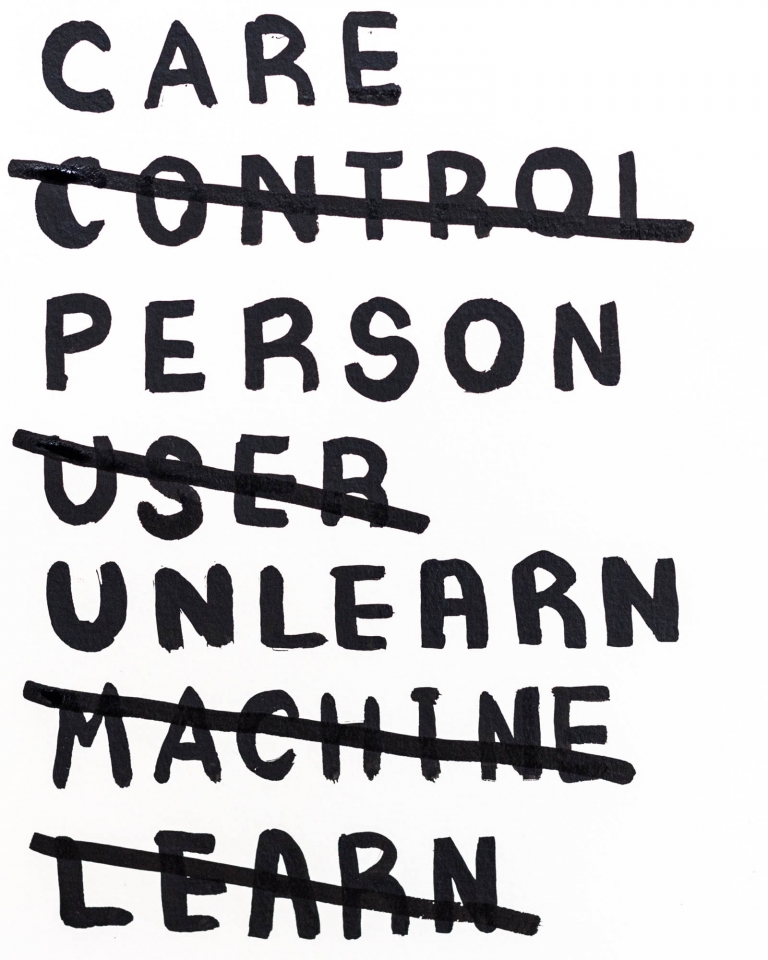 CARE
CONTROL
PERSON
USER
UNLEARN
MACHINE
LEARN